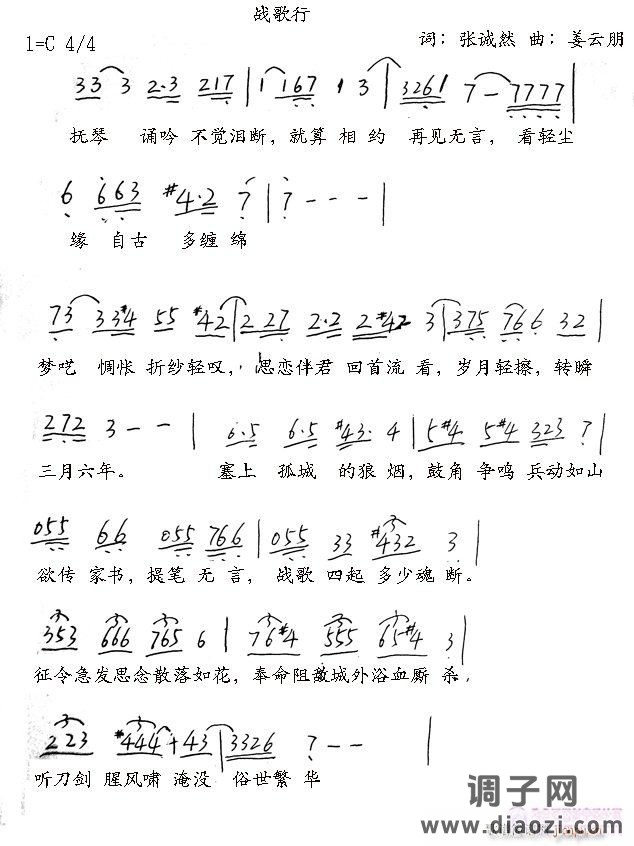 战歌行
1=C 4/4 词：张诚然 曲：姜云朋
33 3 2·3 217 | 1 167 1 3 | 3261 7 — 7777 |
抚琴 诵吟 不觉泪断，就算 相 约 再见无言， 看轻尘
6 663 #4·2 7 | 7 - - - |
缘 自古 多缠 绵
73 33#4 55 #42 | 2 27 2·2 2#42 3 | 375 766 32 |
梦呓 惆怅 折纱轻叹，思恋伴君 回首流 看，岁月轻擦，转瞬
272 3 - - | 6·5 6·5 #43· 4 | 5#4 5#4 323 7 |
三月六年。 塞上 孤城 的狼 烟，鼓角 争鸣 兵动如山
055 66 055 766 | 055 33 #432 3 |
欲传 家书，提笔 无 言， 战歌 四起 多少魂 断。
353 666 765 6 | 76#4 555 65#4 3 |
征令急发思念散落如花，奉命阻敌城外浴血厮 杀，
223 #444+43 | 3326 7 - - |
听刀剑 腥风啸 淹没 俗世繁 华
调子网
www.diaozi.com